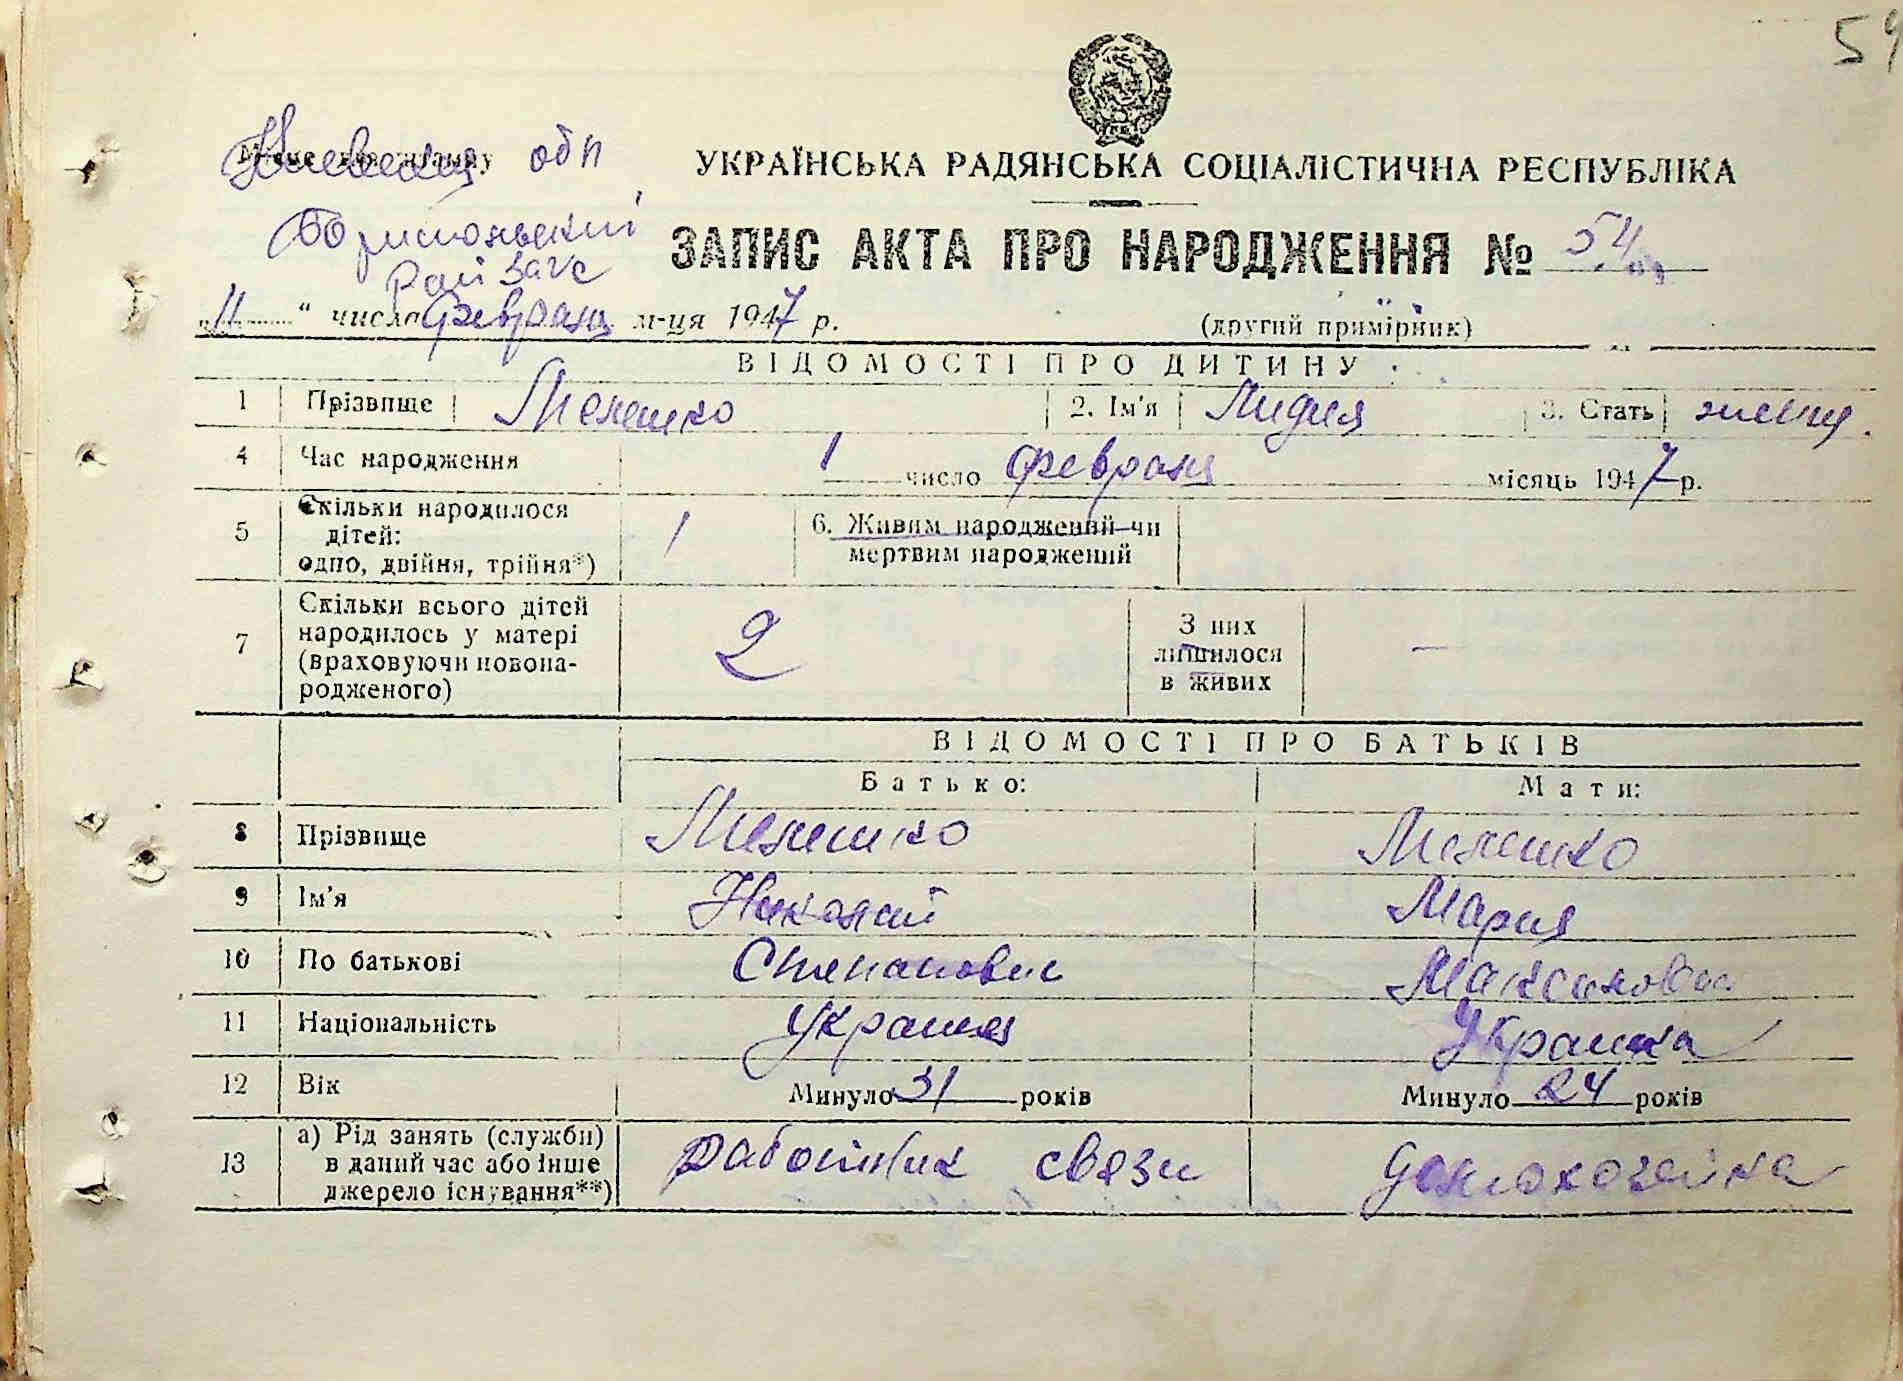 59
Киевская обл
УКРАЇНСЬКА РАДЯНСЬКА СОЦІАЛІСТИЧНА РЕСПУБЛІКА
Бориспольский
Райзагс
ЗАПИС АКТА ПРО НАРОДЖЕННЯ № 54
„11“ числа февраля м-ця 1947 р.
(другий примірник)
ВІДОМОСТІ ПРО ДИТИНУ
1 Прізвище Мелешко 2. Ім'я Лидия 3. Стать
4 Час народження 1 число февраля місяць 1947 р.
5 Скільки народилося дітей: одно, двійня, трійня*) 1 6. Живим народжений чи мертвим народжений
7 Скільки всього дітей народилось у матері (враховуючи новона-родженого) 2 З них лишилося в живих —
ВІДОМОСТІ ПРО БАТЬКІВ
Батько: Мати:
8 Прізвище Мелешко Мелешко
9 Ім'я Николай Мария
10 По батькові Степанович Максимовна
11 Національність Украинец Украинка
12 Вік Минуло 31 років Минуло 24 років
13 а) Рід занять (служби) в даний час або інше джерело існування**) работник связи домохозяйка